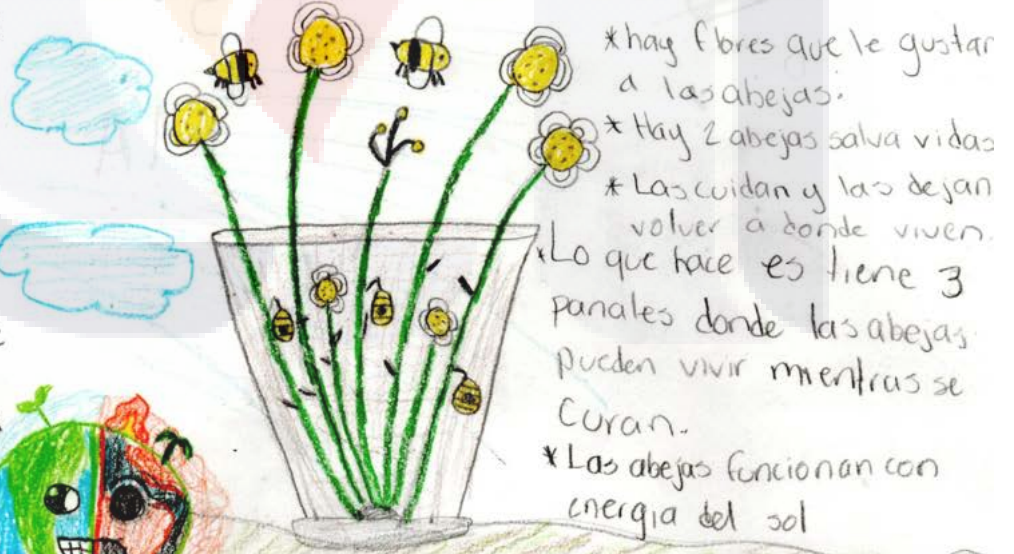 * hay flores que le gustar
a las abejas.
* Hay 2 abejas salva vidas
* Las cuidan y las dejan
volver a donde viven.
* Lo que hace es tiene 3
panales donde las abejas
pueden vivir mientras se
curan.
* Las abejas funcionan con
energia del sol